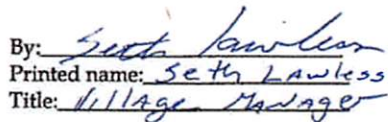 By: Seth Lawless
Printed name: Seth Lawless
Title: Village Manager